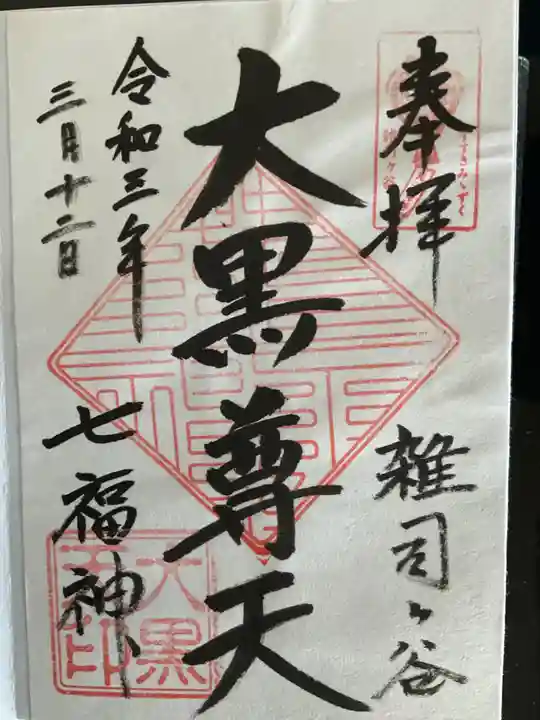 奉拝
雑司ヶ谷
大黒尊天
令和三年
三月十二日
七福神
大黒
天印